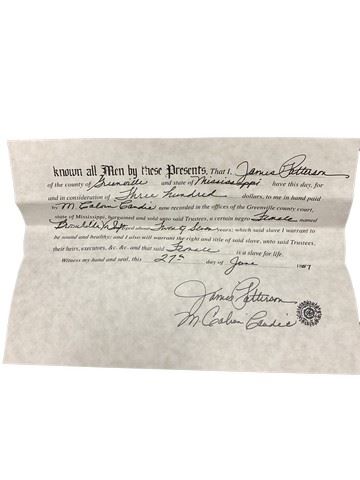 Known all Men by these Presents, That I, James Patterson
of the county of Greenville and state of Mississippi have this day, for
and in consideration of Three Hundred dollars, to me in hand paid
by M. Calvin Candie now recorded in the offices of the Greenville county court,
state of Mississippi, bargained and sold unto said Trustees, a certain negro Female named
and Twenty Seven years; which said slave I warrant to
be sound and healthy; and I also will warrant the right and title of said slave, unto said Trustees,
their heirs, executors, &c. &c. and that said Female is a slave for life.
Witness my hand and seal, this 27th day of June
James Patterson
M. Calvin Candie